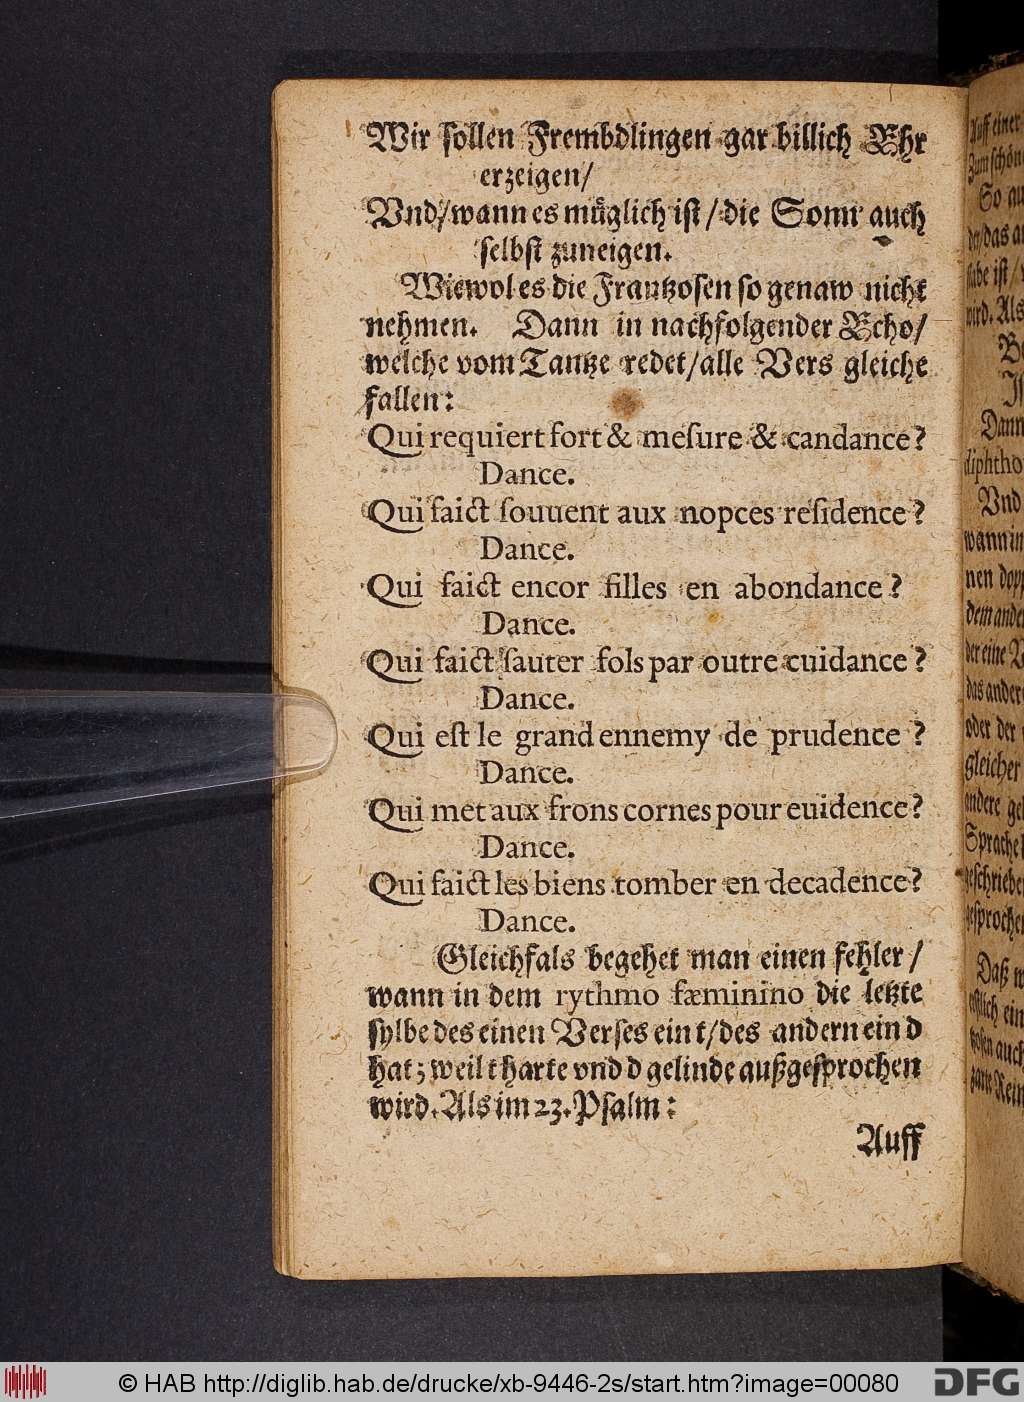 Wir sollen Frembdlingen gar billich Ehr
erzeigen/
Vnd/wann es müglich ist/die Sonn auch
selbst zuneigen.
Wiewol es die Frantzosen so genaw nicht
nehmen. Dann in nachfolgender Echo/
welche vom Tantze redet/alle Vers gleiche
fallen:
Qui requiert fort & meſure & candance?
Dance.
Qui faict ſouuent aux nopces reſidence?
Dance.
Qui faict encor filles en abondance?
Dance.
Qui faict ſauter fols par outre cuidance?
Dance.
Qui eſt le grand ennemy de prudence?
Dance.
Qui met aux frons cornes pour euidence?
Dance.
Qui faict les biens tomber en decadence?
Dance.
Gleichfals begehet man einen fehler/
wann in dem rythmo fæminino die letzte
sylbe des einen Verses ein t/des andern ein d
hat; weil t harte vnd d gelinde außgesprochen
wird. Als im 23. Psalm:
Auff
Auff einer
Zum schön
So au
ist/
wird. Als
Dann
diphtho
Vnd
wann in
nen dopp
dem ander
der eine V
das ander
oder der
gleicher
andere gel
Sprache
geschrieben
gesprochen
Daß
ein
auch
Reim
© HAB http://diglib.hab.de/drucke/xb-9446-2s/start.htm?image=00080
DFG